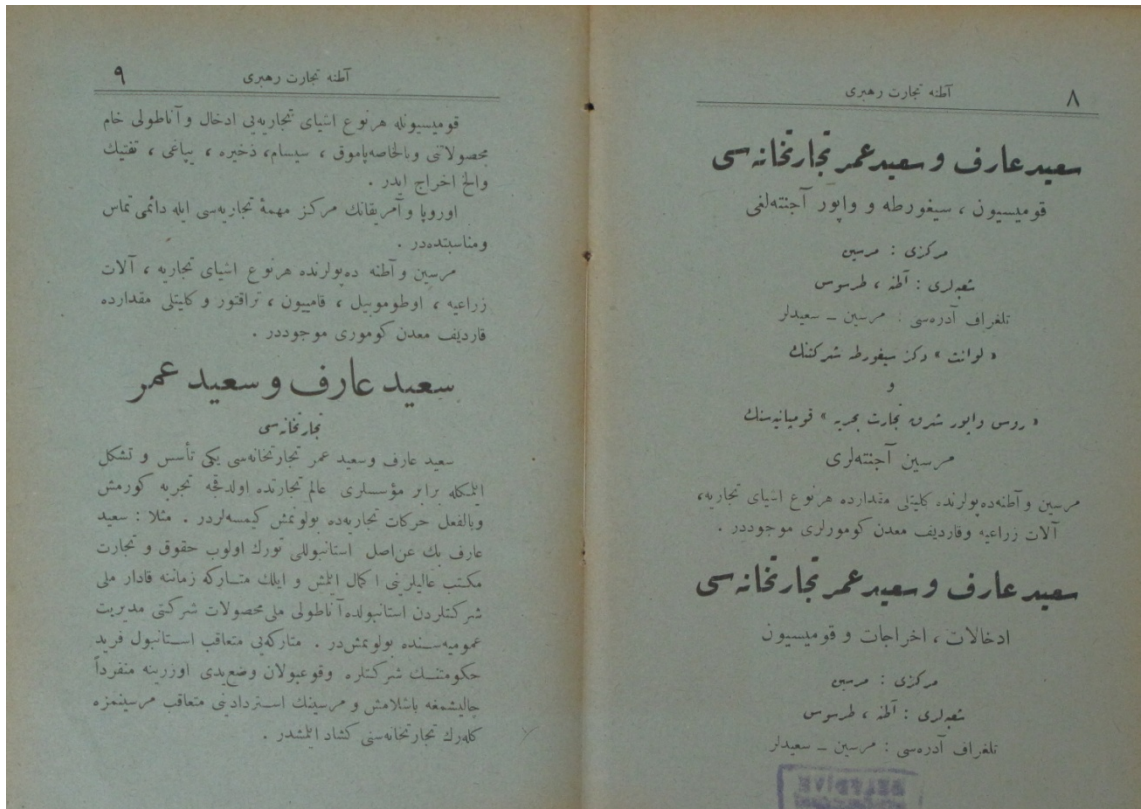 ٨
آطنه تجارت رهبری
سعيد عارف و سعيد عمر تجارتخانه سی
قوميسيون ، سيغورطه و واپور آجنته‌لغی
مركزی : مرسين
شعبه‌لری : آطنه ، طرسوس
تلغراف آدره‌سی : مرسين ــ سعيدلر
« لوانت » دكز سيغورطه شركتنك
و
« روس واپور شرق تجارت بحريه » قومپانيه‌سنك
مرسين آجنته‌لری
مرسين و آطنه ده‌پولرنده، كليتلی مقدارده هرنوع اشيای تجاريه،
آلات زراعيه وقارديف معدن كومورلری موجوددر .
سعيد عارف و سعيد عمر تجارتخانه سی
ادخالات ، اخراجات و قوميسيون
مركزی : مرسين
شعبه‌لری : آطنه ، طرسوس
تلغراف آدره‌سی : مرسين ــ سعيدلر
٩
آطنه تجارت رهبری
قوميسيونله هرنوع اشيای تجاريه‌يی ادخال و آناطولی خام
محصولاتنی وبالخاصه پاموق ، سيسام، ذخيره ، يپاغی ، تفتيك
والخ اخراج ايدر .
اوروپا و آمريقانك مركز مهمۀ تجاريه‌سی ايله دائمی تماس
ومناسبتده‌در .
مرسين و آطنه ده‌پولرنده هرنوع اشيای تجاريه ، آلات
زراعيه ، اوطوموبيل ، قاميون ، تراقتور و كليتلی مقدارده
قارديف معدن كوموری موجوددر .
سعيد عارف و سعيد عمر
تجارتخانه‌سی
سعيد عارف وسعيد عمر تجارتخانه‌سی يكی تأسس و تشكل
ايتمكله برابر مؤسسلری عالم تجارتده اولدقجه تجربه كورمش
وبالفعل حركات تجاريه‌ده بولونمش كيمسه‌لردر . مثلا : سعيد
عارف بك عن‌اصل استانبوللی تورك اولوب حقوق و تجارت
مكتب عاليلرينی اكمال ايتمش و ايلك متاركه زماننه قادار ملی
شركتلردن استانبولده آناطولی ملی محصولات شركتی مديريت
عموميه‌سنده بولونمش‌در . متاركه‌يی متعاقب استانبول فريد
حكومتنك شركتلره وقوعبولان وضع‌يدی اوزرينه منفرداً
چاليشمغه باشلامش و مرسينك استردادينی متعاقب مرسينمزه
كله‌رك تجارتخانه‌سنی كشاد ايتمشدر .
BELEDİYE